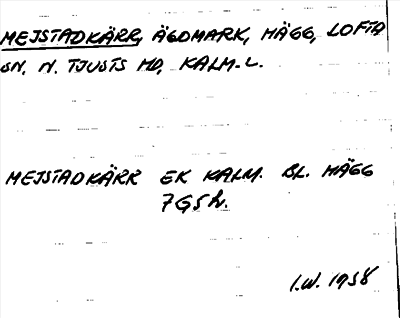 MEJSTADKÄRR, ÄGOMARK, HÄGG, LOFTA
SN, N. TJUSTS HD, KALM. L.
MEJSTADKÄRR EK KALM. BL. HÄGG
7G5h.
I.W. 1958